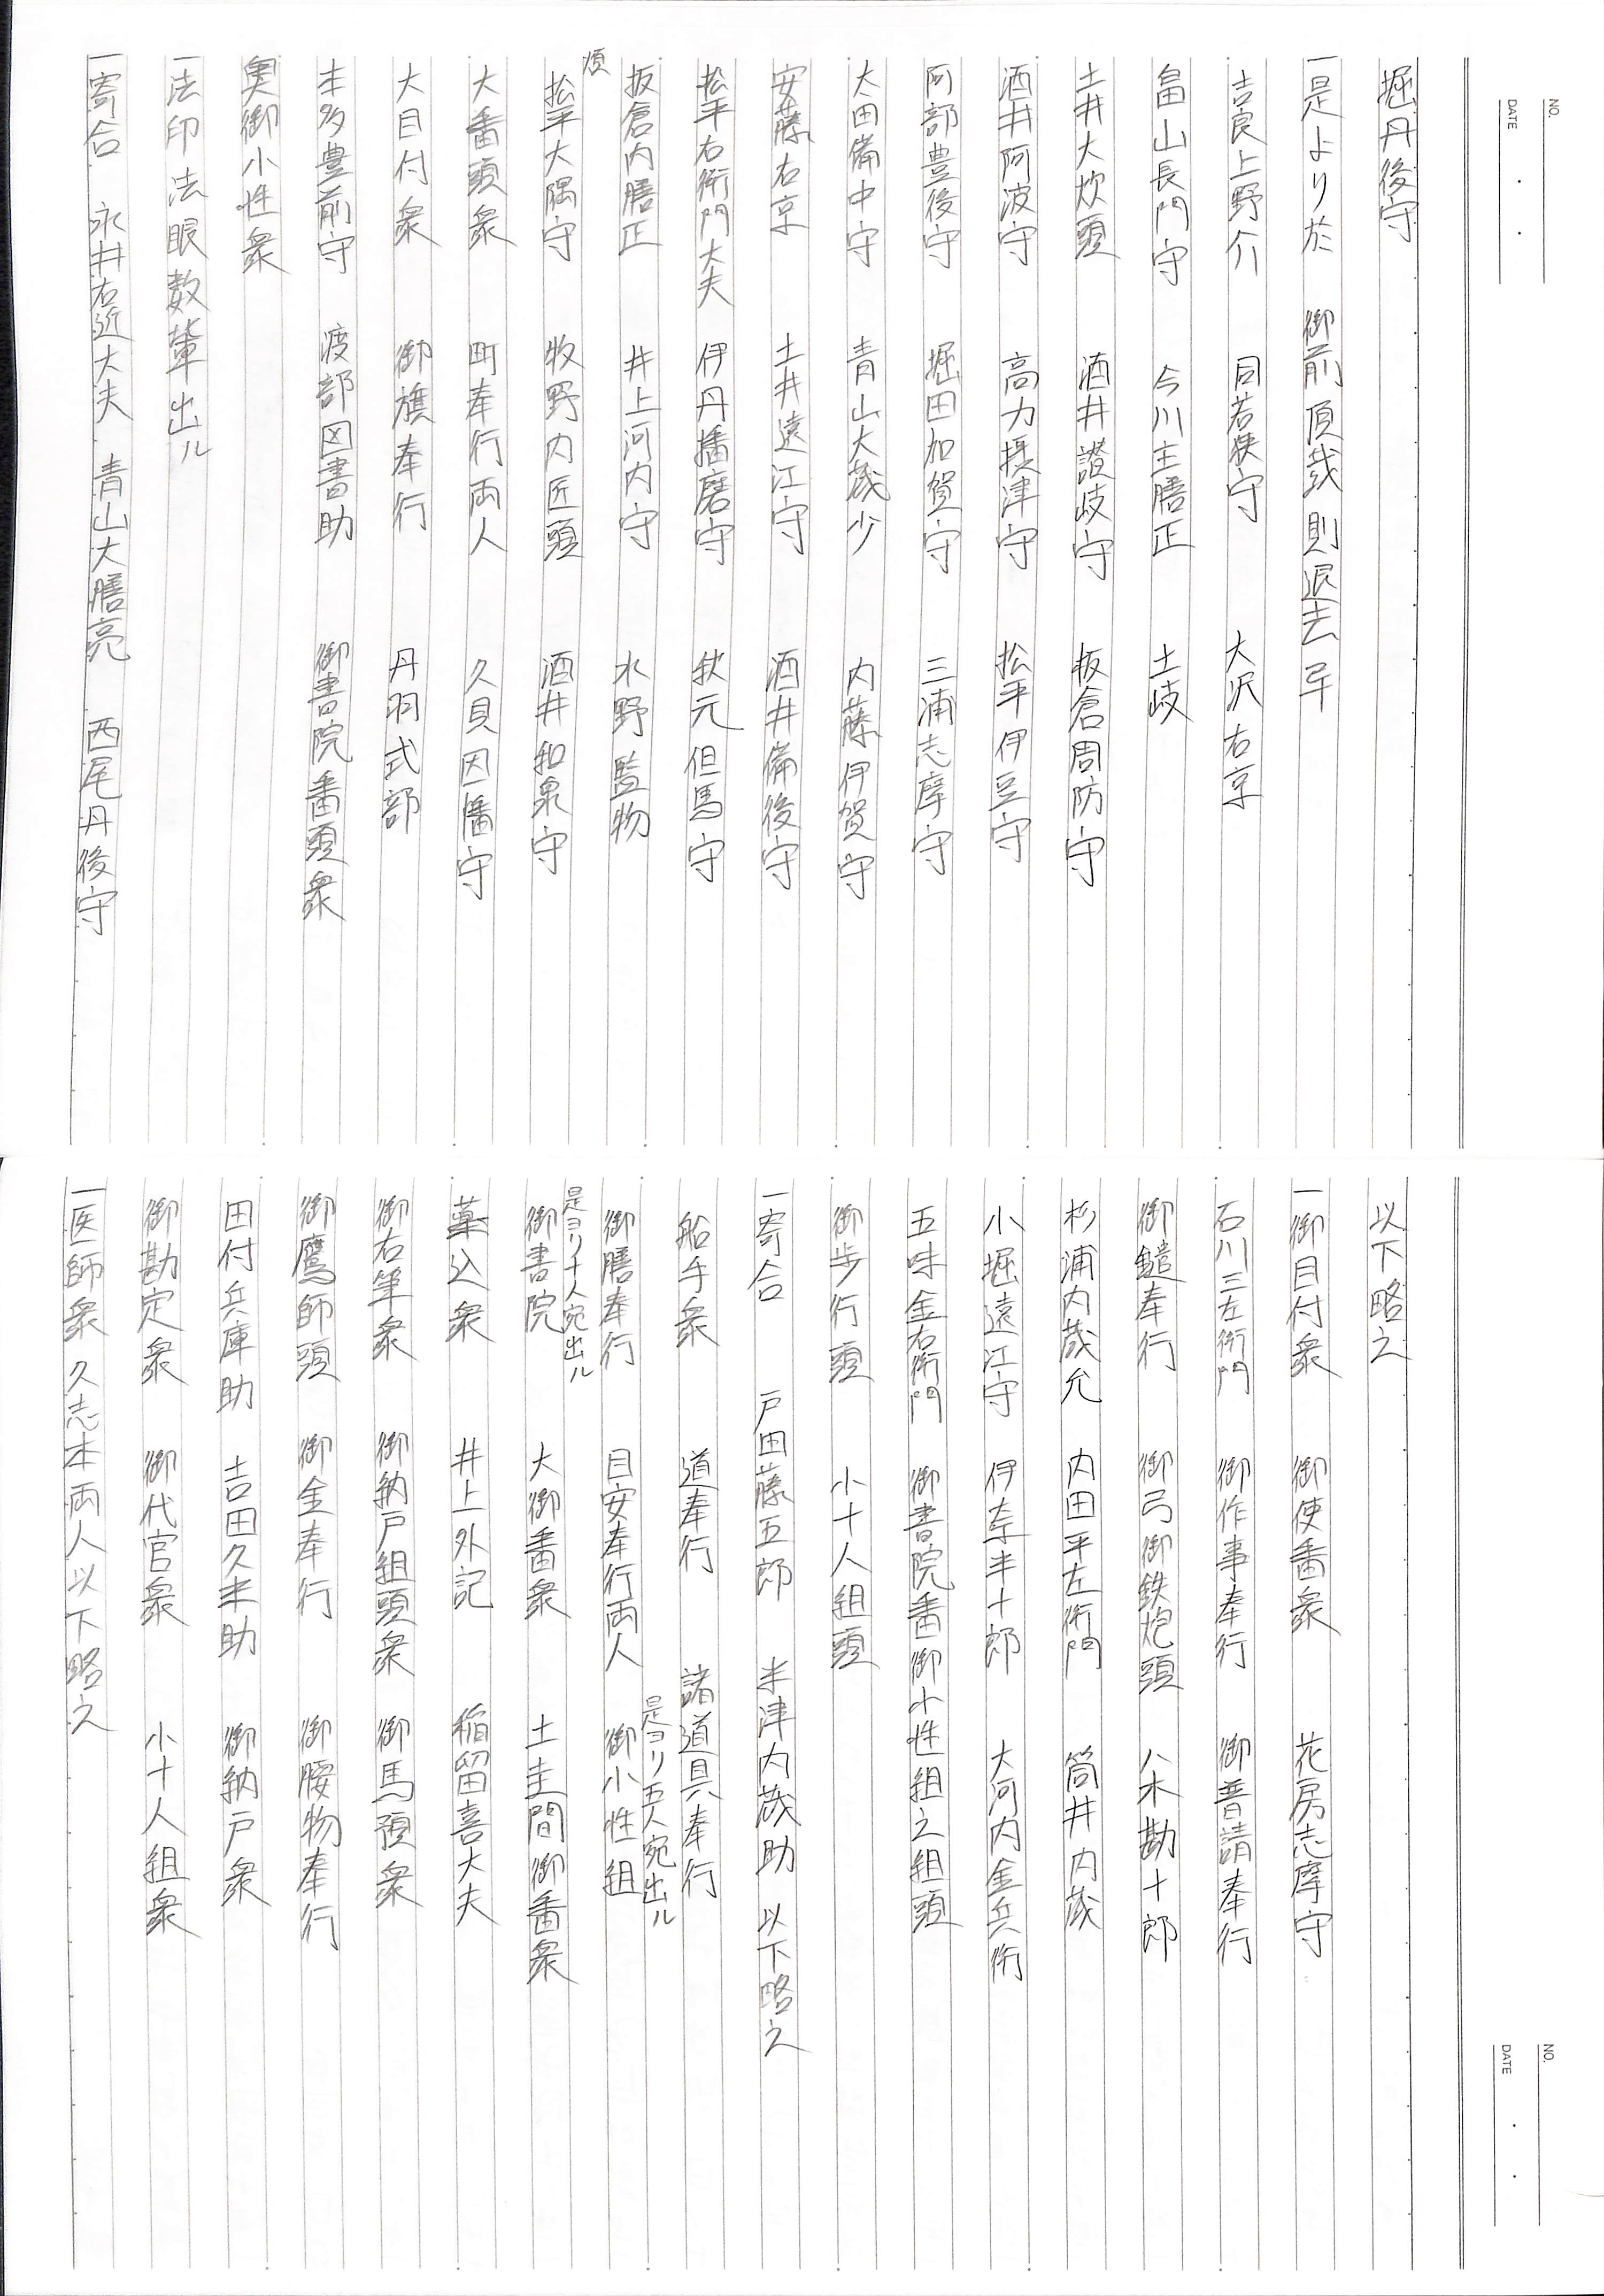 NO.
DATE
堀丹後守
一是より於　御前頂戴則退去早
吉良上野介　同若狭守　大沢右京
畠山長門守　今川主膳正　土岐
土井大炊頭　酒井讃岐守　板倉周防守
酒井阿波守　高力摂津守　松平伊豆守
阿部豊後守　堀田加賀守　三浦志摩守
太田備中守　青山大蔵少　内藤伊賀守
安藤右京　土井遠江守　酒井備後守
松平右衛門大夫　伊丹播磨守　秋元但馬守
板倉内膳正　井上河内守　水野監物
松平大隅守　牧野内匠頭　酒井和泉守
大番頭衆　町奉行両人　久貝因幡守
大目付衆　御旗奉行　丹羽式部
本多豊前守　渡部図書助　御書院番頭衆
奥御小性衆
一法印法眼数輩出ル
一寄合　永井右近大夫　青山大膳亮　西尾丹後守
NO.
DATE
以下略之
一御目付衆　御使番衆　花房志摩守
石川三左衛門　御作事奉行　御普請奉行
御鑓奉行　御弓御鉄炮頭　八木勘十郎
杉浦内蔵允　内田平左衛門　筒井内蔵
小堀遠江守　伊奈半十郎　大河内金兵衛
五味金右衛門　御書院番御小性組之組頭
御歩行頭　小十人組頭
一寄合　戸田藤五郎　米津内蔵助　以下略之
船手衆　道奉行　諸道具奉行
是ヨリ五人宛出ル
御膳奉行　目安奉行両人　御小性組
是ヨリ十人宛出ル
御書院　大御番衆　土圭間御番衆
薬込衆　井上外記　稲留喜大夫
御右筆衆　御納戸組頭衆　御馬預衆
御鷹師頭　御金奉行　御腰物奉行
田付兵庫助　吉田久米助　御納戸衆
御勘定衆　御代官衆　小十人組衆
一医師衆　久志本両人以下略之